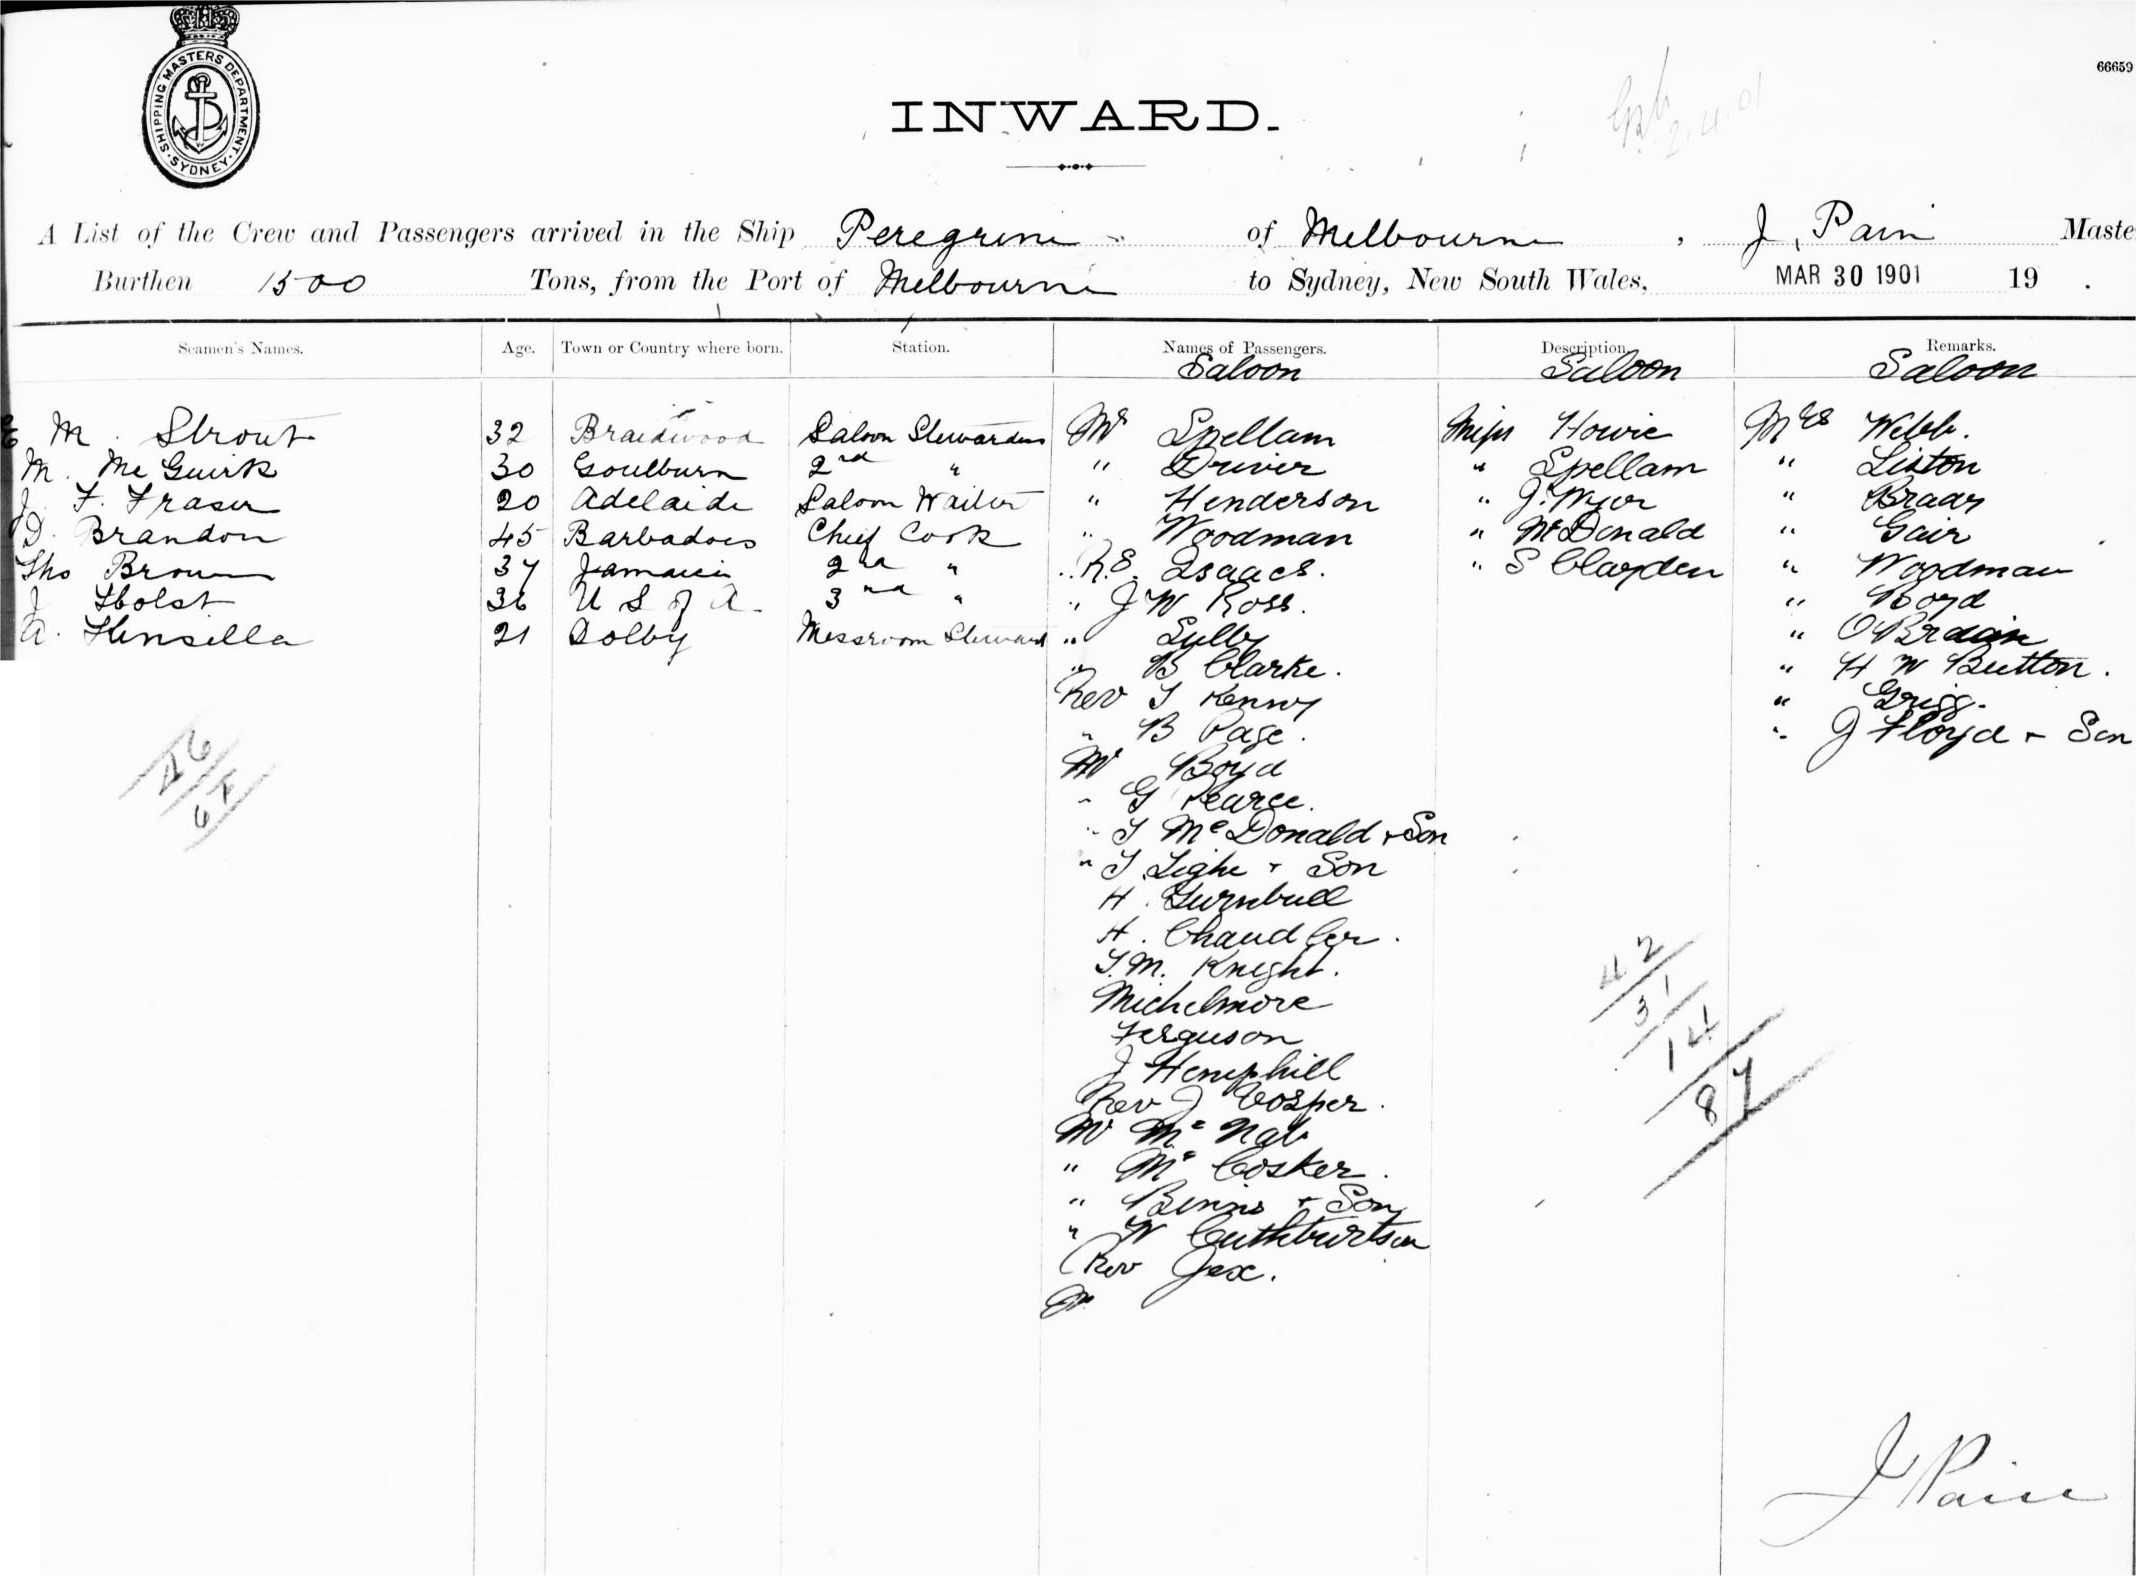 SHIPPING MASTERS DEPARTMENT · SYDNEY ·
66659
INWARD.
2.4.01
A List of the Crew and Passengers arrived in the Ship Peregrine of Melbourne , J. Pain Maste
Burthen 1500 Tons, from the Port of Melbourne to Sydney, New South Wales, MAR 30 1901 19 .
Seamen's Names. Age. Town or Country where born. Station. Names of Passengers. Description. Remarks.
Saloon Saloon Saloon
E M. Strout 32 Braidwood Saloon Stewardess
M. McGuirk 30 Goulburn 2nd "
J. F. Fraser 20 Adelaide Saloon Waiter
D. Brandon 45 Barbadoes Chief Cook
Tho Brown 37 Jamaica 2nd "
J Holst 36 U S of A. 3rd "
A. Kinsella 21 Dolby Messroom Steward
46
64
Mr Spellam
" Driver
" Henderson
" Woodman
" R.E. Isaacs.
" J W Ross.
"
" B Clarke.
Rev T Kenny
" B Page.
Mr Boyd
" G Pearce.
" T McDonald + Son
" T Tighe + Son
H. Turnbull
H. Chandler.
T.M. Knight.
Michelmore
Ferguson
J Hemphill
Rev J Cosper.
Mr McNab
" McCosker.
" Binns + Son
" W Cuthburtson
Rev Jex.
Mr
Miss Howie
" Spellam
" J.
" McDonald
" S Clayden
Mrs Webb.
" Liston
" Braay
" Gair
" Woodman
" Boyd
" O'Brien
" H W Button.
" Grigg.
" J Floyd + Son
42
31
14
87
J Pain